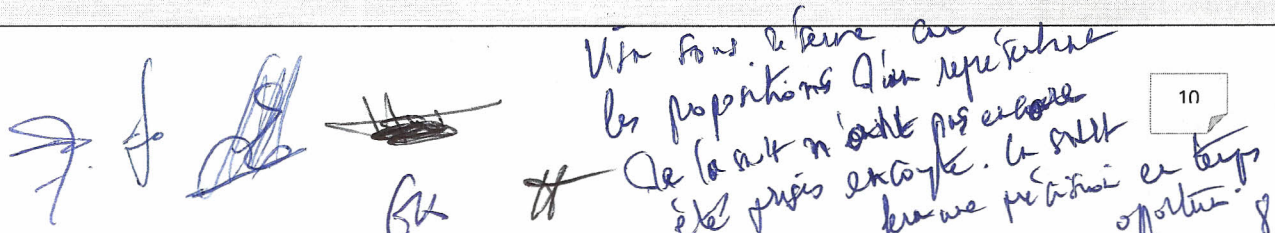 Visa sous réserve car
les propositions d'un représentant
de la SNLT n'ont pas encore
été prises en compte. La SNLT
fera une précision en temps
opportun.
GK
10